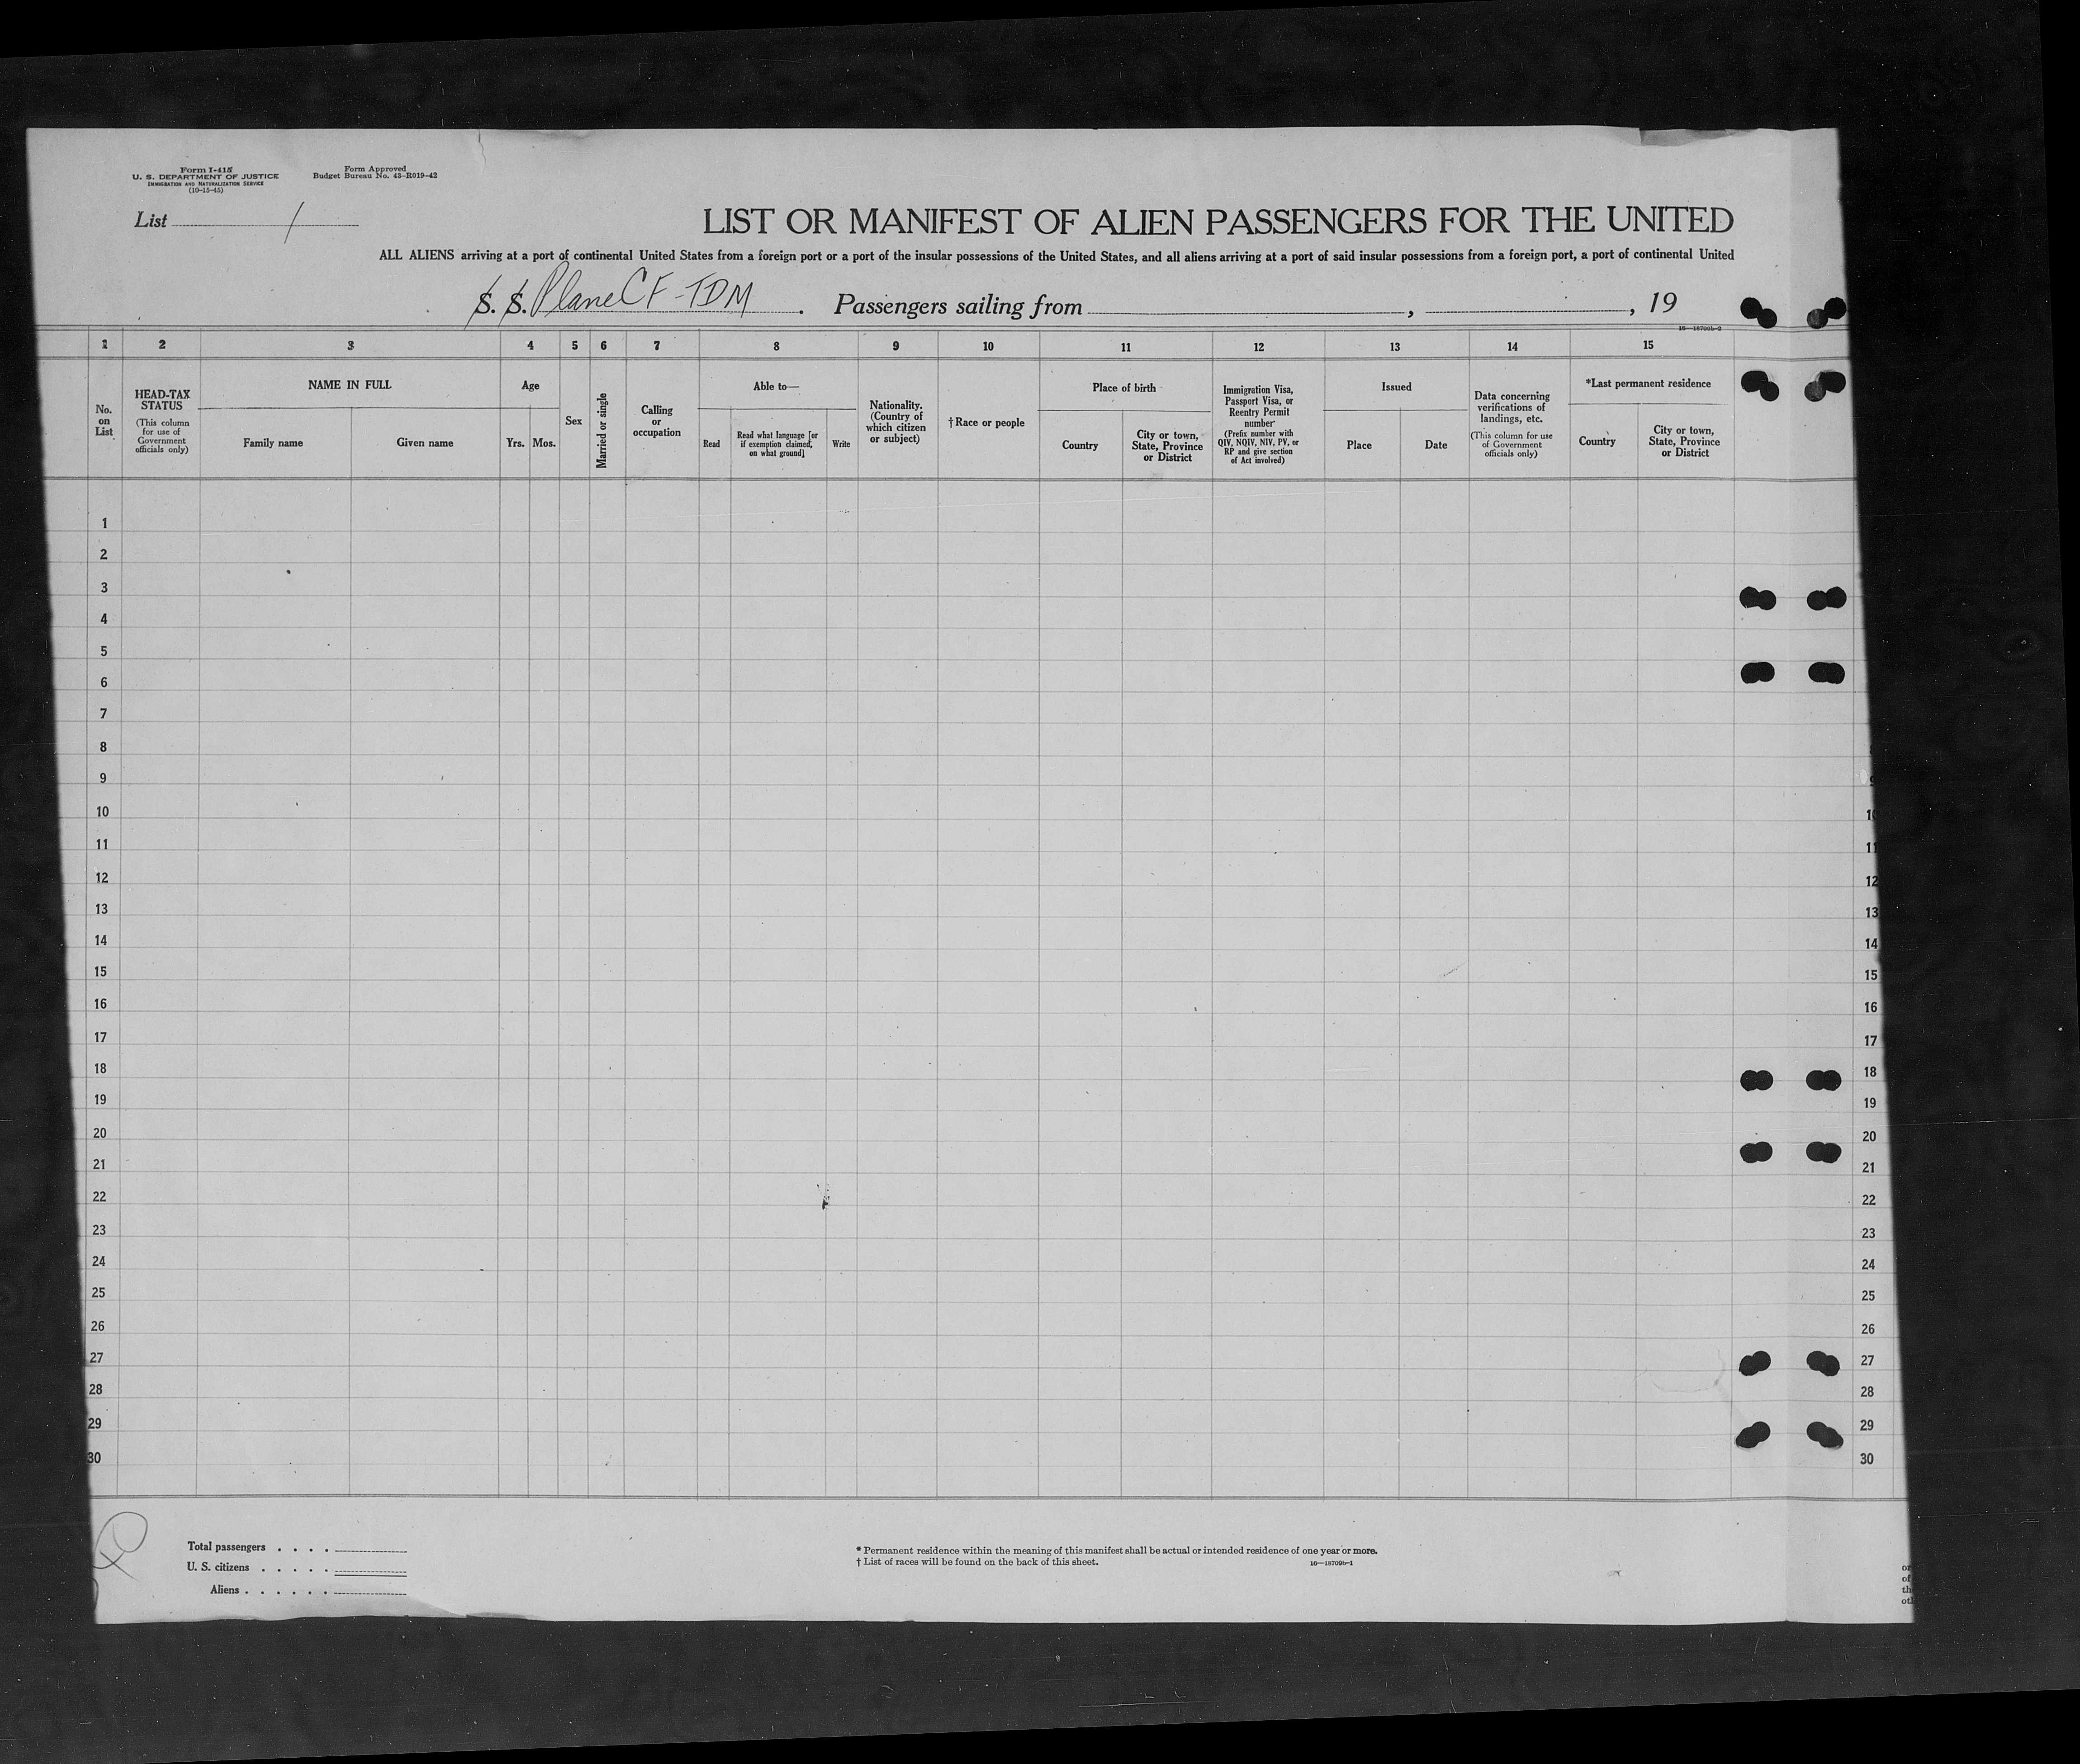 Form I-415
U. S. DEPARTMENT OF JUSTICE
IMMIGRATION AND NATURALIZATION SERVICE
(10-15-45)
Form Approved
Budget Bureau No. 43-R019-42
List 1
LIST OR MANIFEST OF ALIEN PASSENGERS FOR THE UNITED
ALL ALIENS arriving at a port of continental United States from a foreign port or a port of the insular possessions of the United States, and all aliens arriving at a port of said insular possessions from a foreign port, a port of continental United
S. S. Plane CF-TDM. Passengers sailing from , , 19
16—18709b-2
1 2 3 4 5 6 7 8 9 10 11 12 13 14 15
No. on List
HEAD-TAX STATUS
(This column for use of Government officials only)
NAME IN FULL
Family name
Given name
Age
Yrs. Mos.
Sex
Married or single
Calling or occupation
Able to—
Read
Read what language [or if exemption claimed, on what ground]
Write
Nationality. (Country of which citizen or subject)
† Race or people
Place of birth
Country
City or town, State, Province or District
Immigration Visa, Passport Visa, or Reentry Permit number
(Prefix number with QIV, NQIV, NIV, PV, or RP and give section of Act involved)
Issued
Place
Date
Data concerning verifications of landings, etc.
(This column for use of Government officials only)
*Last permanent residence
Country
City or town, State, Province or District
1
2
3
4
5
6
7
8
9
10 10
11 11
12 12
13 13
14 14
15 15
16 16
17 17
18 18
19 19
20 20
21 21
22 22
23 23
24 24
25 25
26 26
27 27
28 28
29 29
30 30
Total passengers . . . .
U. S. citizens . . . . .
Aliens . . . . . .
* Permanent residence within the meaning of this manifest shall be actual or intended residence of one year or more.
† List of races will be found on the back of this sheet.
16—18709b-1